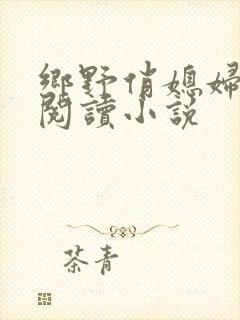 鄉野俏媳婦
閱讀小說
茶青